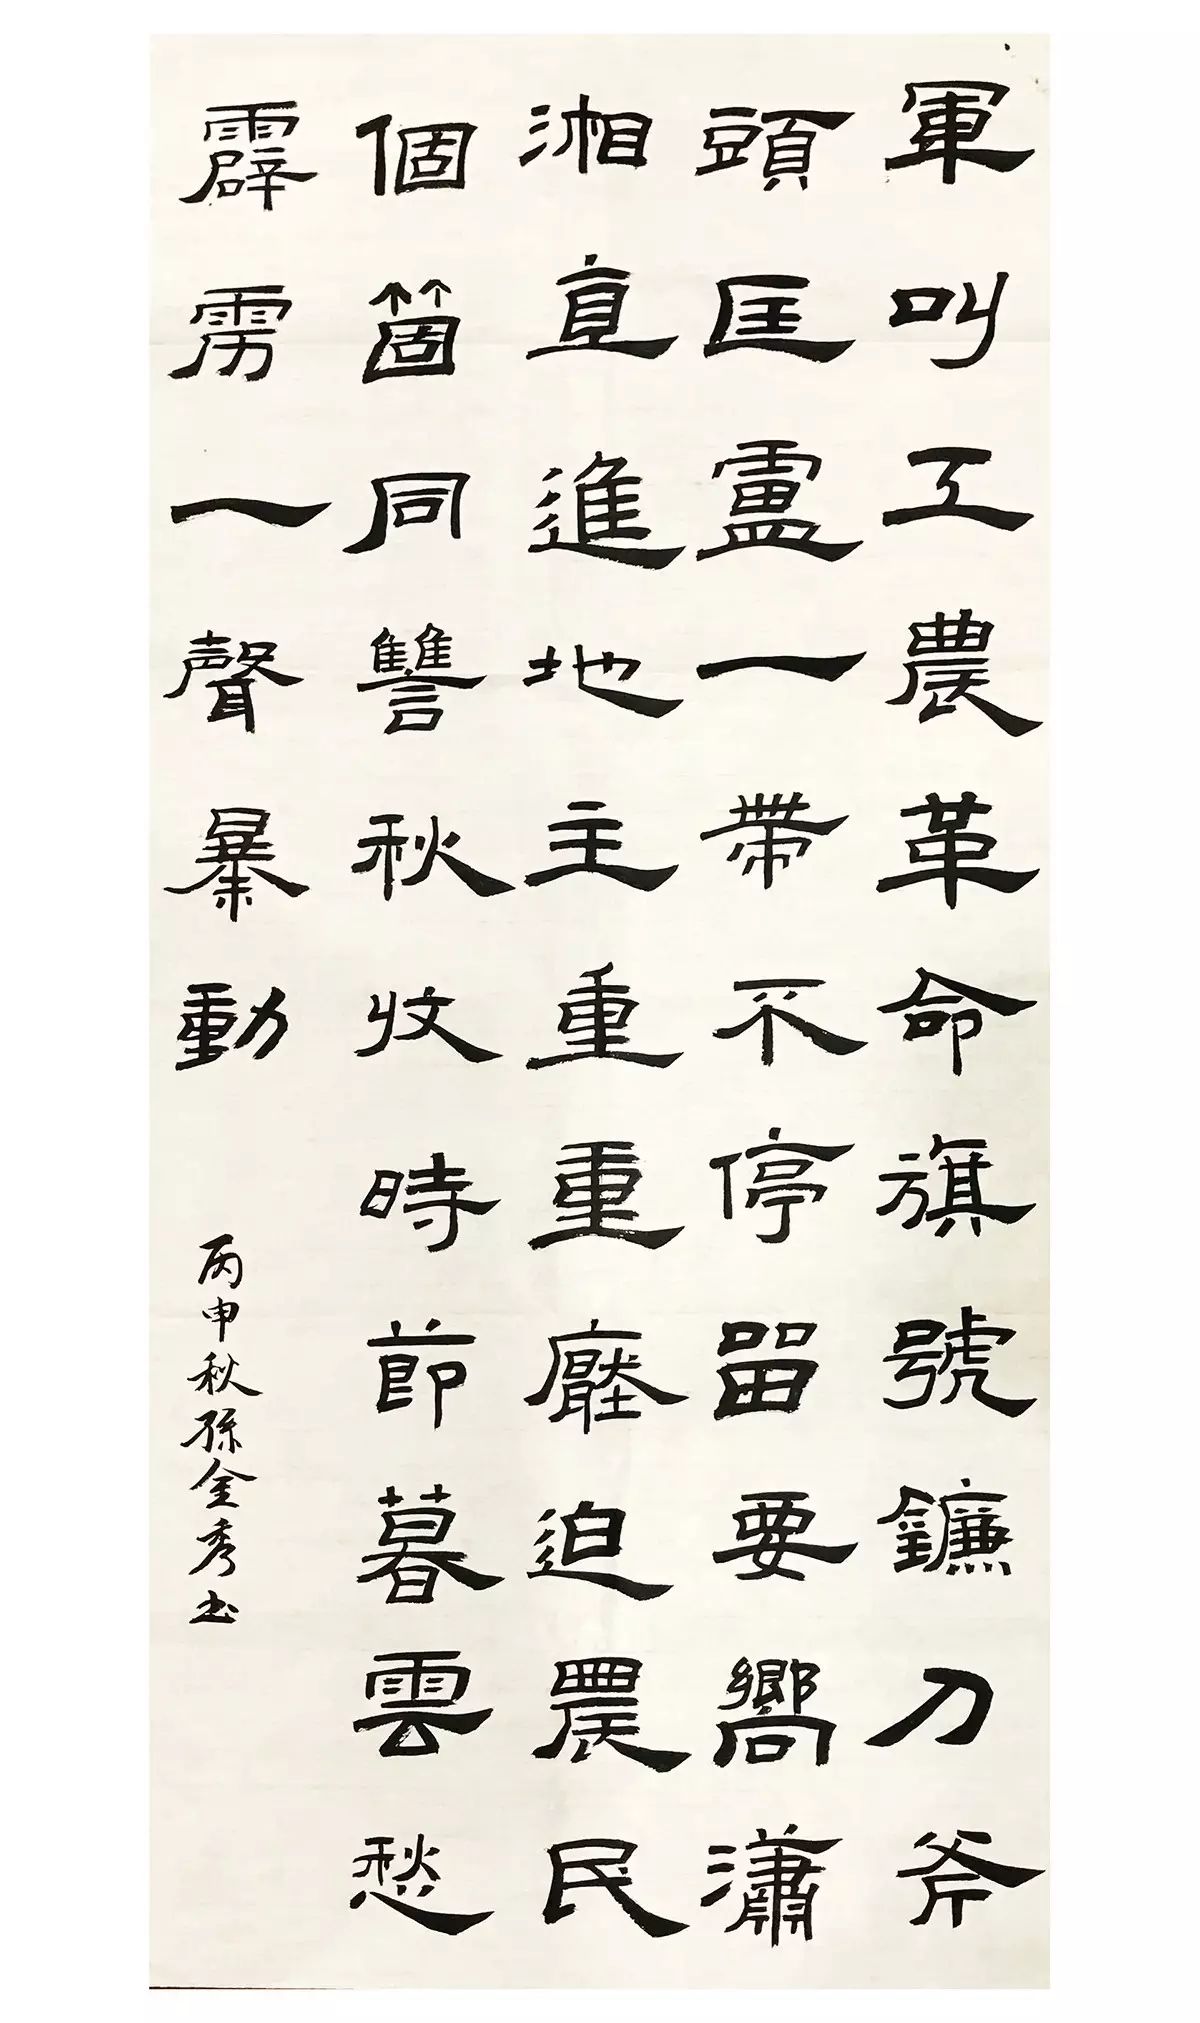 軍叫工農革命旗號鐮刀斧
頭匡廬一帶不停留要嚮瀟
湘直進地主重重壓迫農民
個箇同讐秋收時節暮雲愁
霹雳一聲暴動
丙申秋孫金秀书